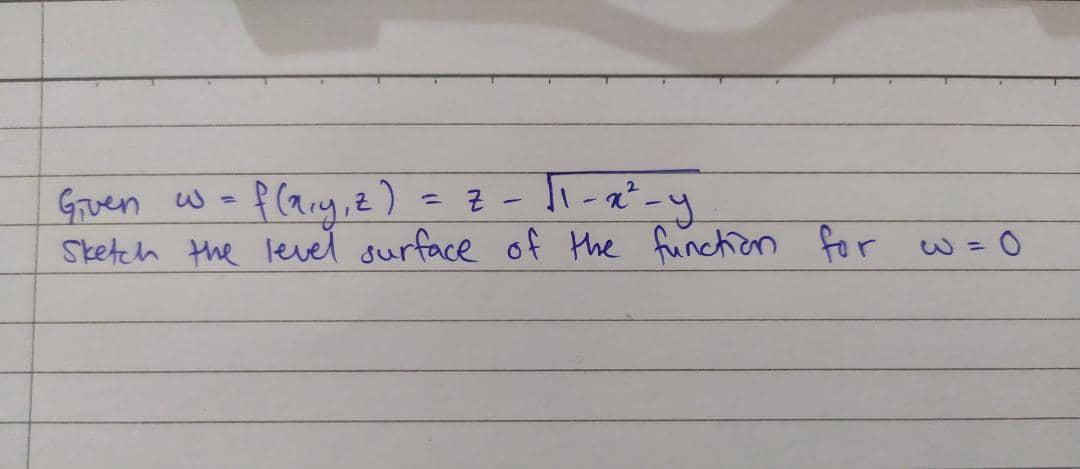 Given w = f(x,y,z) = z - √1-x²-y
Sketch the level surface of the function for w = 0